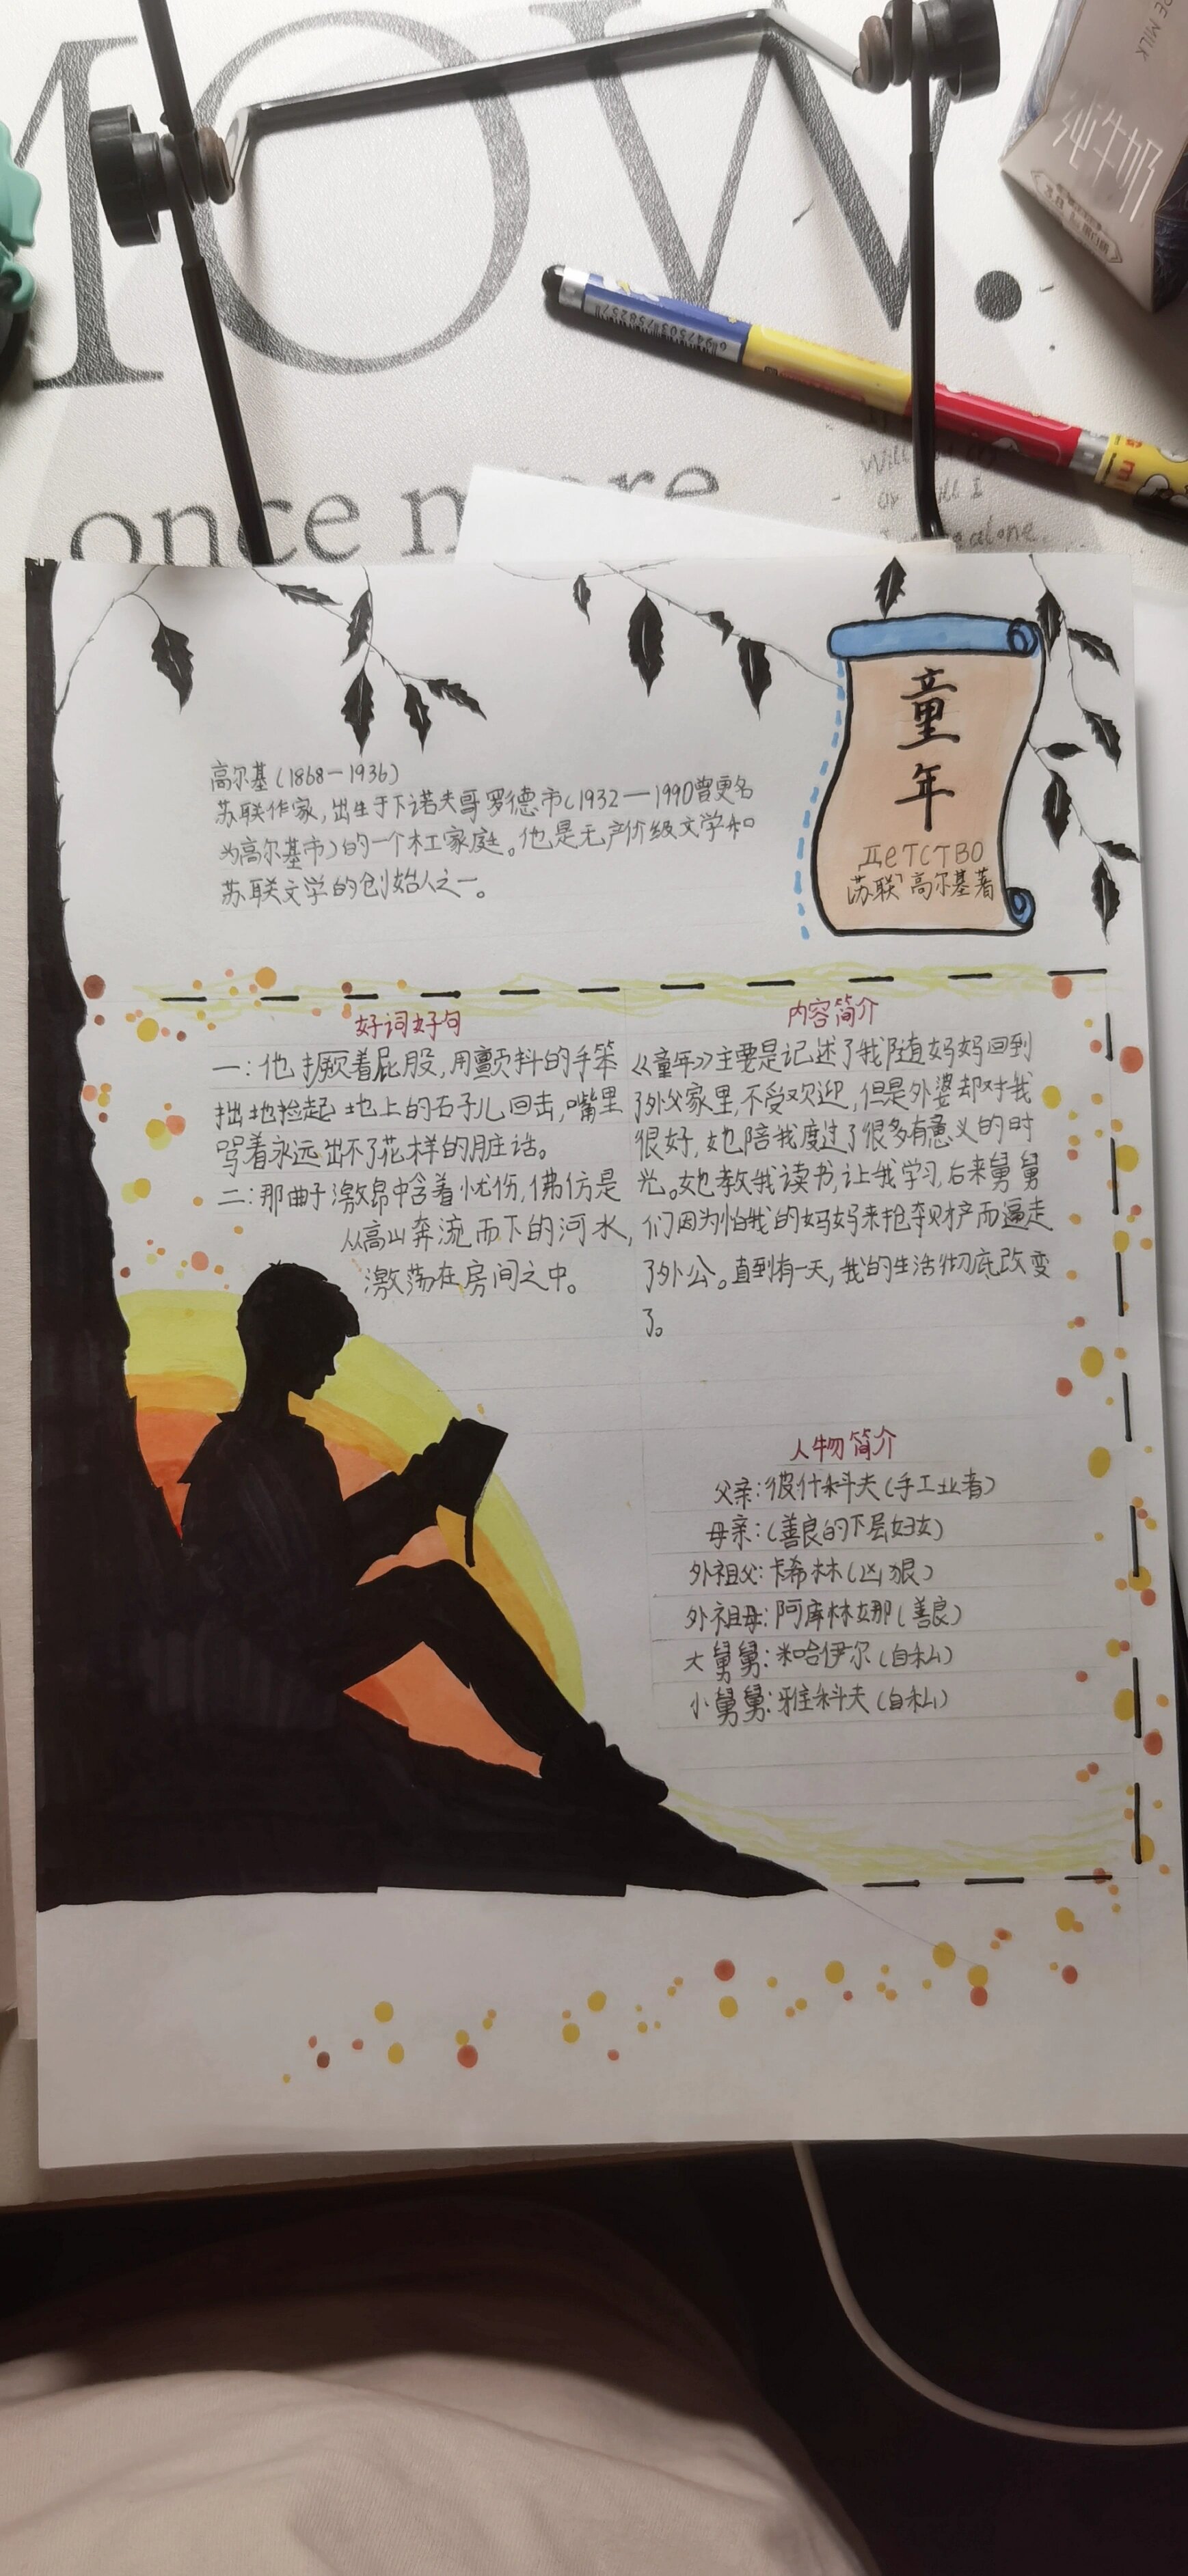 MOW.
once more
纯牛奶
6947503758257
童
年
ДеТСТВО
苏联 高尔基著
高尔基(1868—1936)
苏联作家,出生于下诺夫哥罗德市(1932—1990曾更名
为高尔基市)的一个木工家庭。他是无产阶级文学和
苏联文学的创始人之一。
好词好句
一:他撅着屁股,用颤抖的手笨
拙地捡起地上的石子儿回击,嘴里
骂着永远出不了花样的脏话。
二:那曲子激昂中含着忧伤,佛仿是
从高山奔流而下的河水,
激荡在房间之中。
内容简介
《童年》主要是记述了我随妈妈回到
了外父家里,不受欢迎,但是外婆却对我
很好,她陪我度过了很多有意义的时
光。她教我读书,让我学习,后来舅舅
们因为怕我的妈妈来抢夺财产而逼走
了外公。直到有一天,我的生活彻底改变
了。
人物简介
父亲:彼什科夫(手工业者)
母亲:(善良的下层妇女)
外祖父:卡希林(凶狠)
外祖母:阿库林娜(善良)
大舅舅:米哈伊尔(自私)
小舅舅:雅科夫(自私)